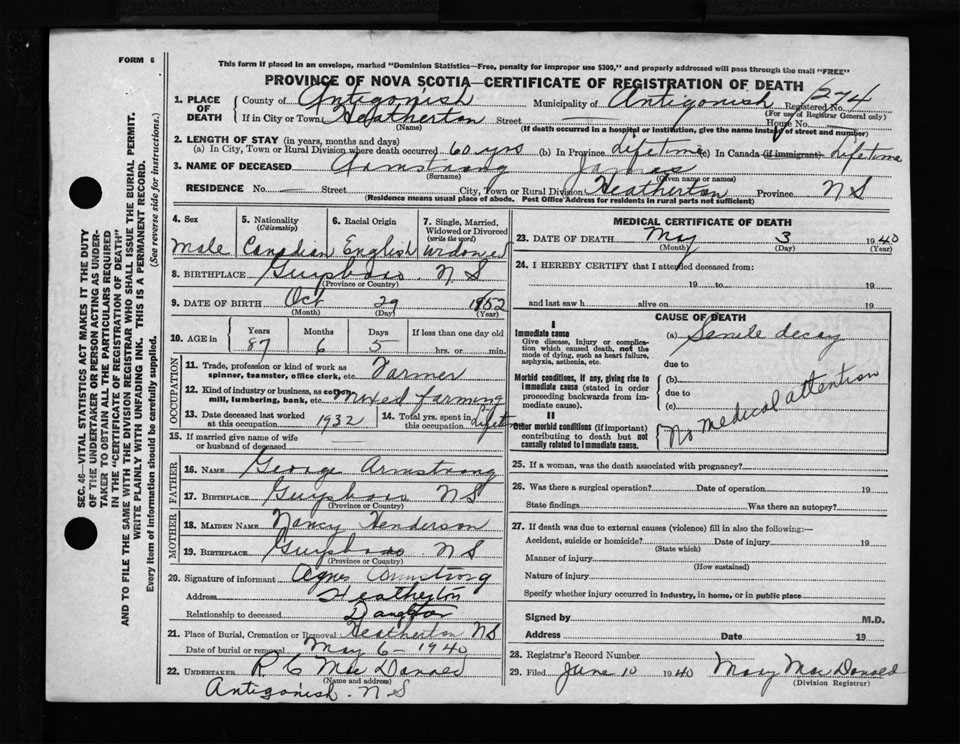 FORM 6
This form if placed in an envelope, marked "Dominion Statistics—Free, penalty for improper use $300," and properly addressed will pass through the mail "FREE"
PROVINCE OF NOVA SCOTIA—CERTIFICATE OF REGISTRATION OF DEATH
1. PLACE OF DEATH County of Antigonish Municipality of Antigonish Registered No. 274
(For use of Registrar General only)
If in City or Town Heatherton Street — House No.
(Name) (If death occurred in a hospital or institution, give the name instead of street and number)
2. LENGTH OF STAY (in years, months and days)
(a) In City, Town or Rural Division where death occurred 60 yrs (b) In Province Lifetime (c) In Canada (if immigrant) Lifetime
3. NAME OF DECEASED Armstrong James
(Surname) (Given name or names)
RESIDENCE No. — Street City, Town or Rural Division Heatherton Province N S
(Residence means usual place of abode. Post Office Address for residents in rural parts not sufficient)
4. Sex Male
5. Nationality (Citizenship) Canadian
6. Racial Origin English
7. Single, Married, Widowed or Divorced (write the word) Widowed
8. BIRTHPLACE Guysboro N S
(Province or Country)
9. DATE OF BIRTH Oct 29 1852
(Month) (Day) (Year)
10. AGE in Years 87 Months 6 Days 5 If less than one day old
hrs. or min.
OCCUPATION
11. Trade, profession or kind of work as spinner, teamster, office clerk, etc. Farmer
12. Kind of industry or business, as cotton mill, lumbering, bank, etc. mixed farming
13. Date deceased last worked at this occupation 1932
14. Total yrs. spent in this occupation Lifetime
15. If married give name of wife or husband of deceased
FATHER
16. NAME George Armstrong
17. BIRTHPLACE Guysboro N S
(Province or Country)
MOTHER
18. MAIDEN NAME Nancy Henderson
19. BIRTHPLACE Guysboro N S
(Province or Country)
20. Signature of informant Agnes Armstrong
Address Heatherton
Relationship to deceased Daughter
21. Place of Burial, Cremation or Removal Heatherton N S
Date of burial or removal May 6 - 1940
22. UNDERTAKER R C MacDonald
(Name and address)
Antigonish. N S
MEDICAL CERTIFICATE OF DEATH
23. DATE OF DEATH May 3 1940
(Month) (Day) (Year)
24. I HEREBY CERTIFY that I attended deceased from:
19 to 19
and last saw h alive on 19
CAUSE OF DEATH
I
Immediate cause
Give disease, injury or complication which caused death, not the mode of dying, such as heart failure, asphyxia, asthenia, etc.
(a) Senile decay
due to
Morbid conditions, if any, giving rise to immediate cause (stated in order proceeding backwards from immediate cause).
(b)
due to
(c)
II
Other morbid conditions (if important) contributing to death but not causally related to immediate cause.
No medical attention
25. If a woman, was the death associated with pregnancy?
26. Was there a surgical operation? Date of operation 19
State findings Was there an autopsy?
27. If death was due to external causes (violence) fill in also the following:—
Accident, suicide or homicide? Date of injury 19
(State which)
Manner of injury
(How sustained)
Nature of injury
Specify whether injury occurred in industry, in home, or in public place
Signed by M.D.
Address Date 19
28. Registrar's Record Number
29. Filed June 10 1940 Mary MacDonald
(Division Registrar)
SEC. 46—VITAL STATISTICS ACT MAKES IT THE DUTY
OF THE UNDERTAKER OR PERSON ACTING AS UNDER-
TAKER TO OBTAIN ALL THE PARTICULARS REQUIRED
IN THE "CERTIFICATE OF REGISTRATION OF DEATH"
AND TO FILE THE SAME WITH THE DIVISION REGISTRAR WHO SHALL ISSUE THE BURIAL PERMIT.
WRITE PLAINLY WITH UNFADING INK. THIS IS A PERMANENT RECORD.
Every item of information should be carefully supplied. (See reverse side for instructions.)